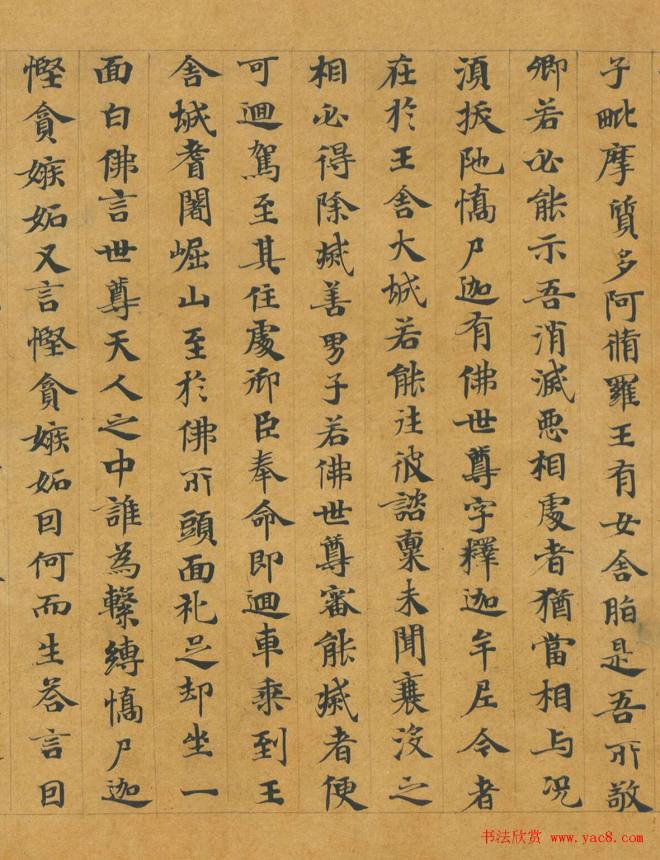 子毗摩質多阿脩羅王有女舍脂是吾所敬
卿若必能示吾消滅惡相處者猶當相与况
須拔陁憍尸迦有佛世尊字釋迦牟尼今者
在於王舍大城若能往彼諮稟未聞衰没之
相必得除滅善男子若佛世尊審能滅者便
可迴駕至其住處御臣奉命即迴車乘到王
舍城耆闍崛山至於佛所頭面礼足却坐一
面白佛言世尊天人之中誰為繫縛憍尸迦
慳貪嫉妬又言慳貪嫉妬因何而生荅言因
书法欣赏 www.yac8.com